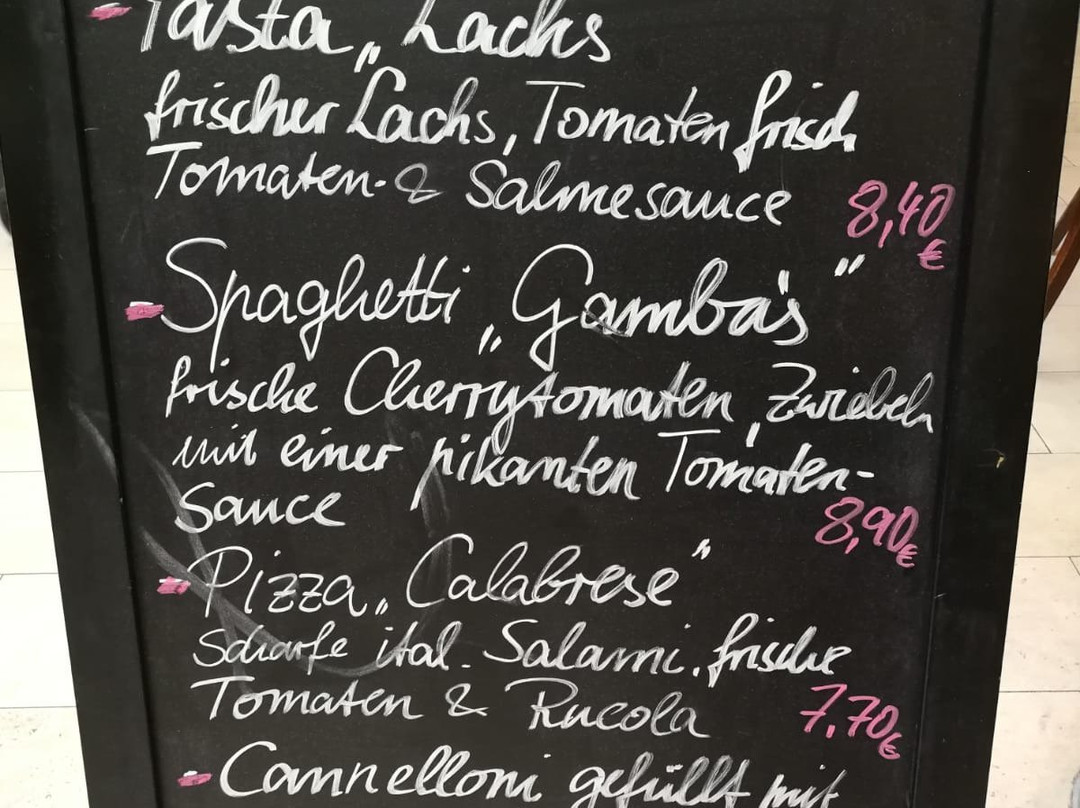 - Pasta „Lachs
frischer Lachs, Tomaten frisch
Tomaten- & Salmesauce 8,40 €
- Spaghetti „Gamba's"
frische Cherrytomaten, Zwiebeln
mit einer pikanten Tomaten-
Sauce 8,90€
- Pizza „Calabrese"
scharfe ital. Salami, frische
Tomaten & Rucola 7,70€
- Cannelloni gefüllt mit